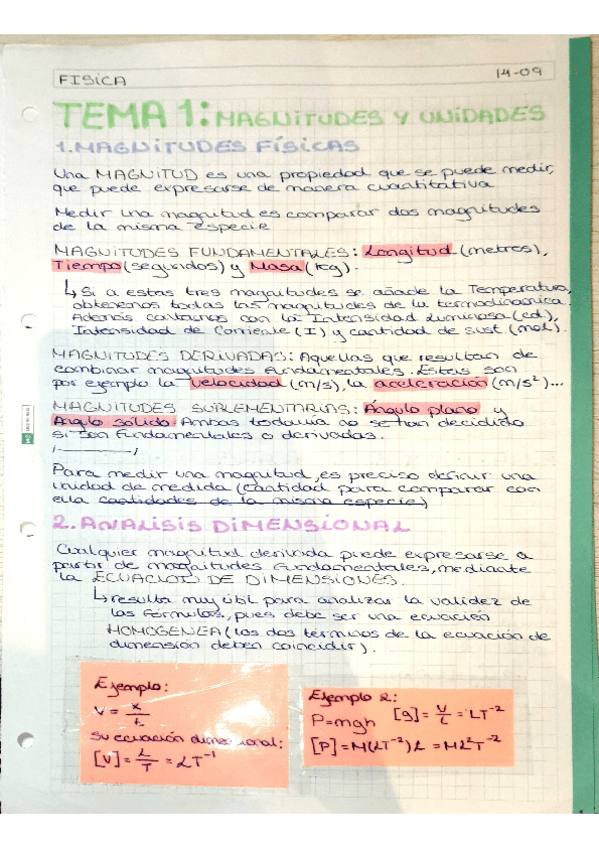 FISICA 14-09
TEMA 1: MAGNITUDES Y UNIDADES
1. MAGNITUDES FÍSICAS
Una MAGNITUD es una propiedad que se puede medir,
que puede expresarse de manera cuantitativa
Medir una magnitud es comparar dos magnitudes
de la misma especie
MAGNITUDES FUNDAMENTALES: Longitud (metros),
Tiempo (segundos) y Masa (kg).
↳ Si a estas tres magnitudes se añade la Temperatura,
obtenemos todas las magnitudes de la termodinámica.
Además contamos con la Intensidad Luminosa (cd),
Intensidad de Corriente (I) y cantidad de sust. (mol).
MAGNITUDES DERIVADAS: Aquellas que resultan de
combinar magnitudes fundamentales. Estas son
por ejemplo la velocidad (m/s), la aceleración (m/s²)...
MAGNITUDES SUPLEMENTARIAS: Ángulo plano y
Angulo sólido. Ambas todavía no se han decidido
si son fundamentales o derivadas.
Para medir una magnitud, es preciso definir una
unidad de medida (cantidad para comparar con
ella cantidades de la misma especie)
2. ANALISIS DIMENSIONAL
Cualquier magnitud derivada puede expresarse a
partir de magnitudes fundamentales, mediante
la ECUACION DE DIMENSIONES.
↳ resulta muy útil para analizar la validez de
las fórmulas, pues debe ser una ecuación
HOMOGENEA (los dos términos de la ecuación de
dimensión deben coincidir).
Ejemplo:
V = x/t
su ecuación dimensional:
[V] = L/T = LT⁻¹
Ejemplo 2:
P=mgh [g] = V/t = LT⁻²
[P] = M(LT⁻²)L = ML²T⁻²